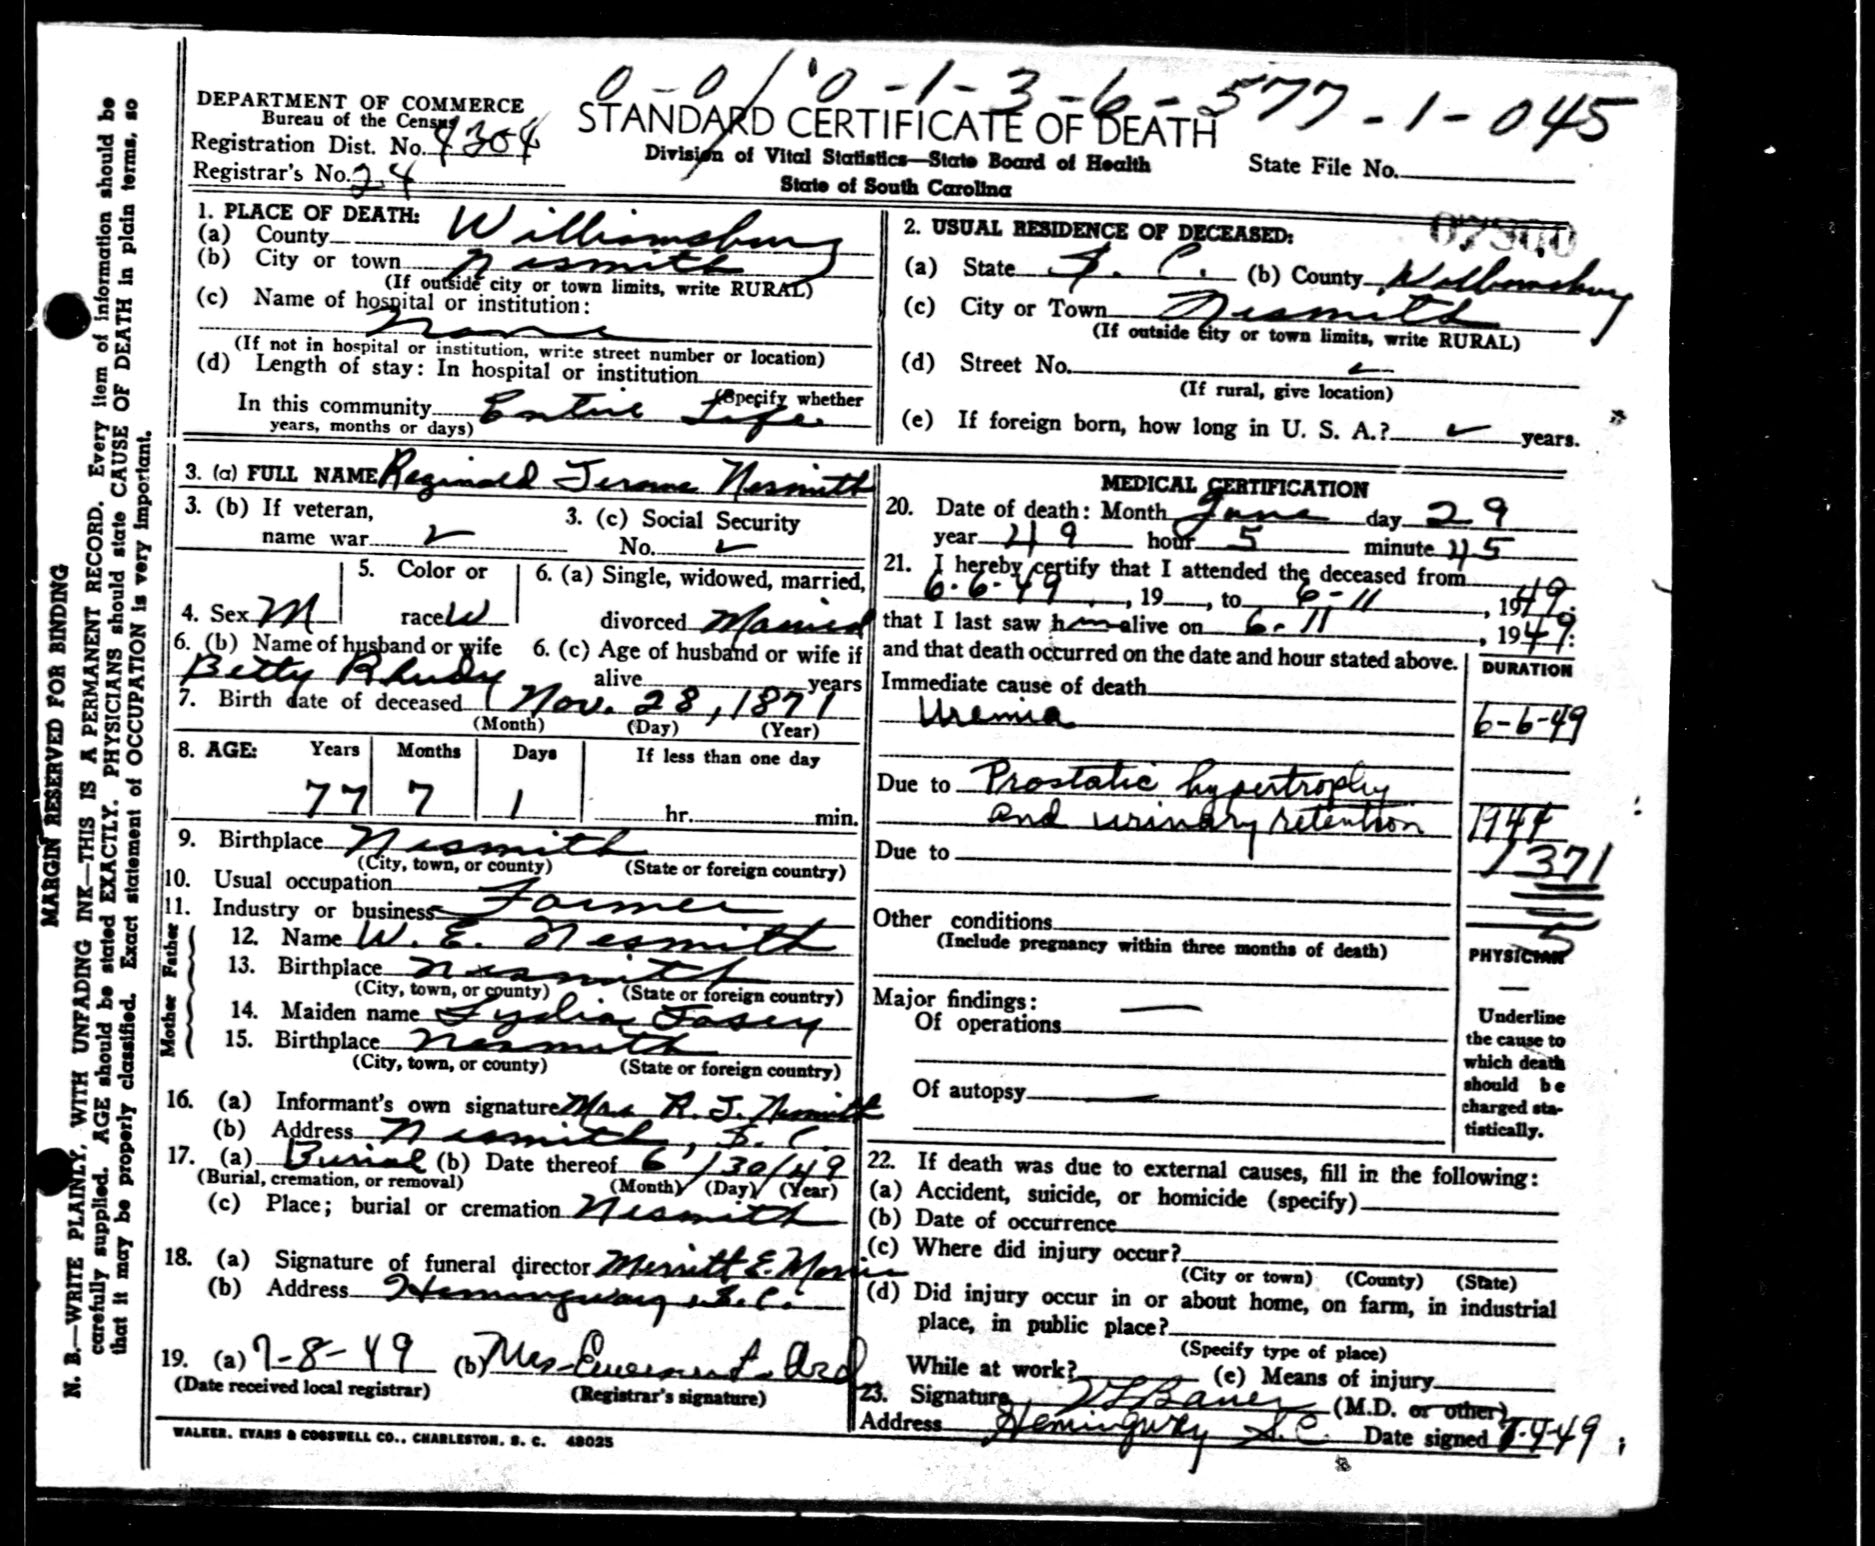 0-0 / 0-1-3-6-577-1-045
DEPARTMENT OF COMMERCE
Bureau of the Census
Registration Dist. No. 4304
Registrar's No. 24
STANDARD CERTIFICATE OF DEATH
Division of Vital Statistics—State Board of Health
State of South Carolina
State File No.
1. PLACE OF DEATH:
(a) County Williamsburg
(b) City or town Nesmith
(If outside city or town limits, write RURAL)
(c) Name of hospital or institution:
None
(If not in hospital or institution, write street number or location)
(d) Length of stay: In hospital or institution
(Specify whether
In this community Entire Life
years, months or days)
2. USUAL RESIDENCE OF DECEASED:
(a) State S. C. (b) County Williamsburg
(c) City or Town Nesmith
(If outside city or town limits, write RURAL)
(d) Street No.
(If rural, give location)
(e) If foreign born, how long in U. S. A.? years.
3. (a) FULL NAME Reginald Jerome Nesmith
3. (b) If veteran,
name war
3. (c) Social Security
No.
4. Sex M
5. Color or
race W
6. (a) Single, widowed, married,
divorced Married
6. (b) Name of husband or wife
Betty Rhudy
6. (c) Age of husband or wife if
alive years
7. Birth date of deceased Nov. 28, 1871
(Month) (Day) (Year)
8. AGE: Years Months Days If less than one day
77 7 1 hr. min.
9. Birthplace Nesmith
(City, town, or county) (State or foreign country)
10. Usual occupation
11. Industry or business Farmer
Father
12. Name W. E. Nesmith
13. Birthplace Nesmith
(City, town, or county) (State or foreign country)
Mother
14. Maiden name Lydia
15. Birthplace Nesmith
(City, town, or county) (State or foreign country)
16. (a) Informant's own signature Mrs R. J. Nesmith
(b) Address Nesmith, S. C.
17. (a) Burial (b) Date thereof 6/30/49
(Burial, cremation, or removal) (Month) (Day) (Year)
(c) Place; burial or cremation Nesmith
18. (a) Signature of funeral director Merritt E.
(b) Address Hemingway, S. C.
19. (a) 7-8-49 (b) Mrs. Ard
(Date received local registrar) (Registrar's signature)
MEDICAL CERTIFICATION
20. Date of death: Month June day 29
year 49 hour 5 minute 45
21. I hereby certify that I attended the deceased from
6-6-49, 19, to 6-11, 1949:
that I last saw him alive on 6-11, 1949:
and that death occurred on the date and hour stated above.
DURATION
Immediate cause of death
Uremia 6-6-49
Due to Prostatic hypertrophy
and urinary retention 1944
Due to
1371
Other conditions
(Include pregnancy within three months of death)
5
PHYSICIAN
—
Underline
the cause to
which death
should be
charged sta-
tistically.
Major findings: —
Of operations
Of autopsy —
22. If death was due to external causes, fill in the following:
(a) Accident, suicide, or homicide (specify)
(b) Date of occurrence
(c) Where did injury occur?
(City or town) (County) (State)
(d) Did injury occur in or about home, on farm, in industrial
place, in public place?
(Specify type of place)
While at work? (e) Means of injury
23. Signature (M.D. or other)
Address Hemingway S.C. Date signed
WALKER, EVANS & COGSWELL CO., CHARLESTON, S. C. 48025
MARGIN RESERVED FOR BINDING
N. B.—WRITE PLAINLY, WITH UNFADING INK—THIS IS A PERMANENT RECORD. Every item of information should be
carefully supplied. AGE should be stated EXACTLY. PHYSICIANS should state CAUSE OF DEATH in plain terms, so
that it may be properly classified. Exact statement of OCCUPATION is very important.